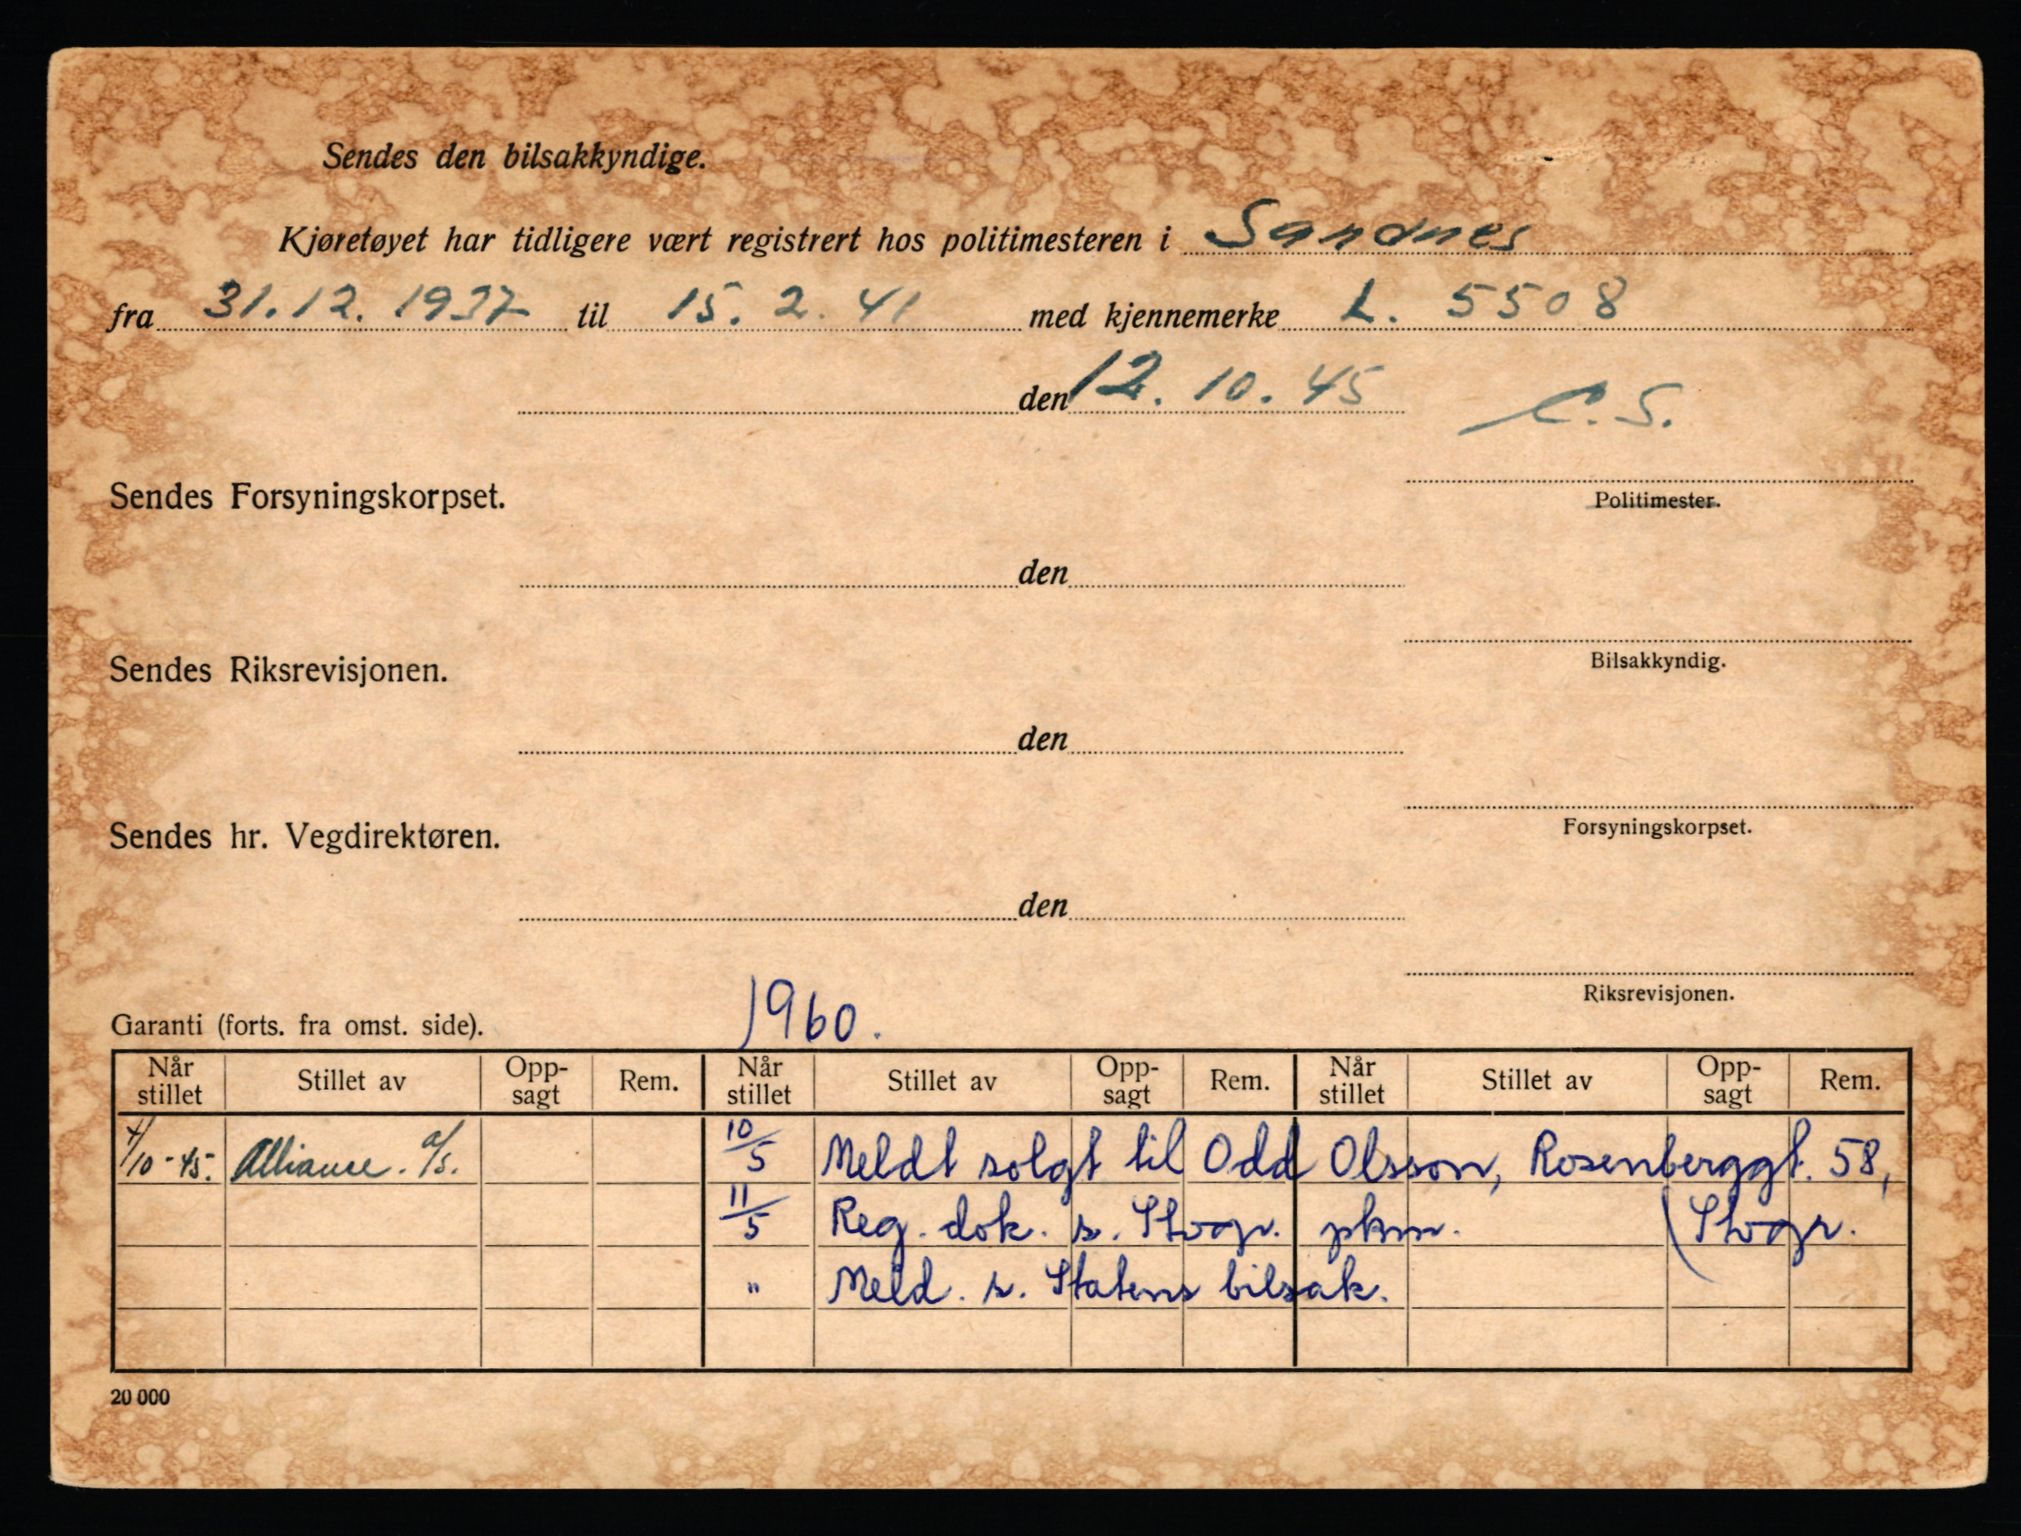 Sendes den bilsakkyndige.
Kjøretøyet har tidligere vært registrert hos politimesteren i Sandnes
fra 31.12.1937 til 15.2.41 med kjennemerke L. 5508
den 12.10.45 C.S.
Sendes Forsyningskorpset.
Politimester.
den
Sendes Riksrevisjonen.
Bilsakkyndig.
den
Sendes hr. Vegdirektøren.
Forsyningskorpset.
den
Riksrevisjonen.
1960.
Garanti (forts. fra omst. side).
Når stillet Stillet av Opp-sagt Rem. Når stillet Stillet av Opp-sagt Rem. Når stillet Stillet av Opp-sagt Rem.
4/10-45. Alliance. a/s. 10/5 Meldt solgt til Odd Olsson, Rosenberggt. 58,
11/5 Reg. dok. s. Stvgr. pkm. (Stvgr.
" Meld. s. Statens bilsak.
20 000